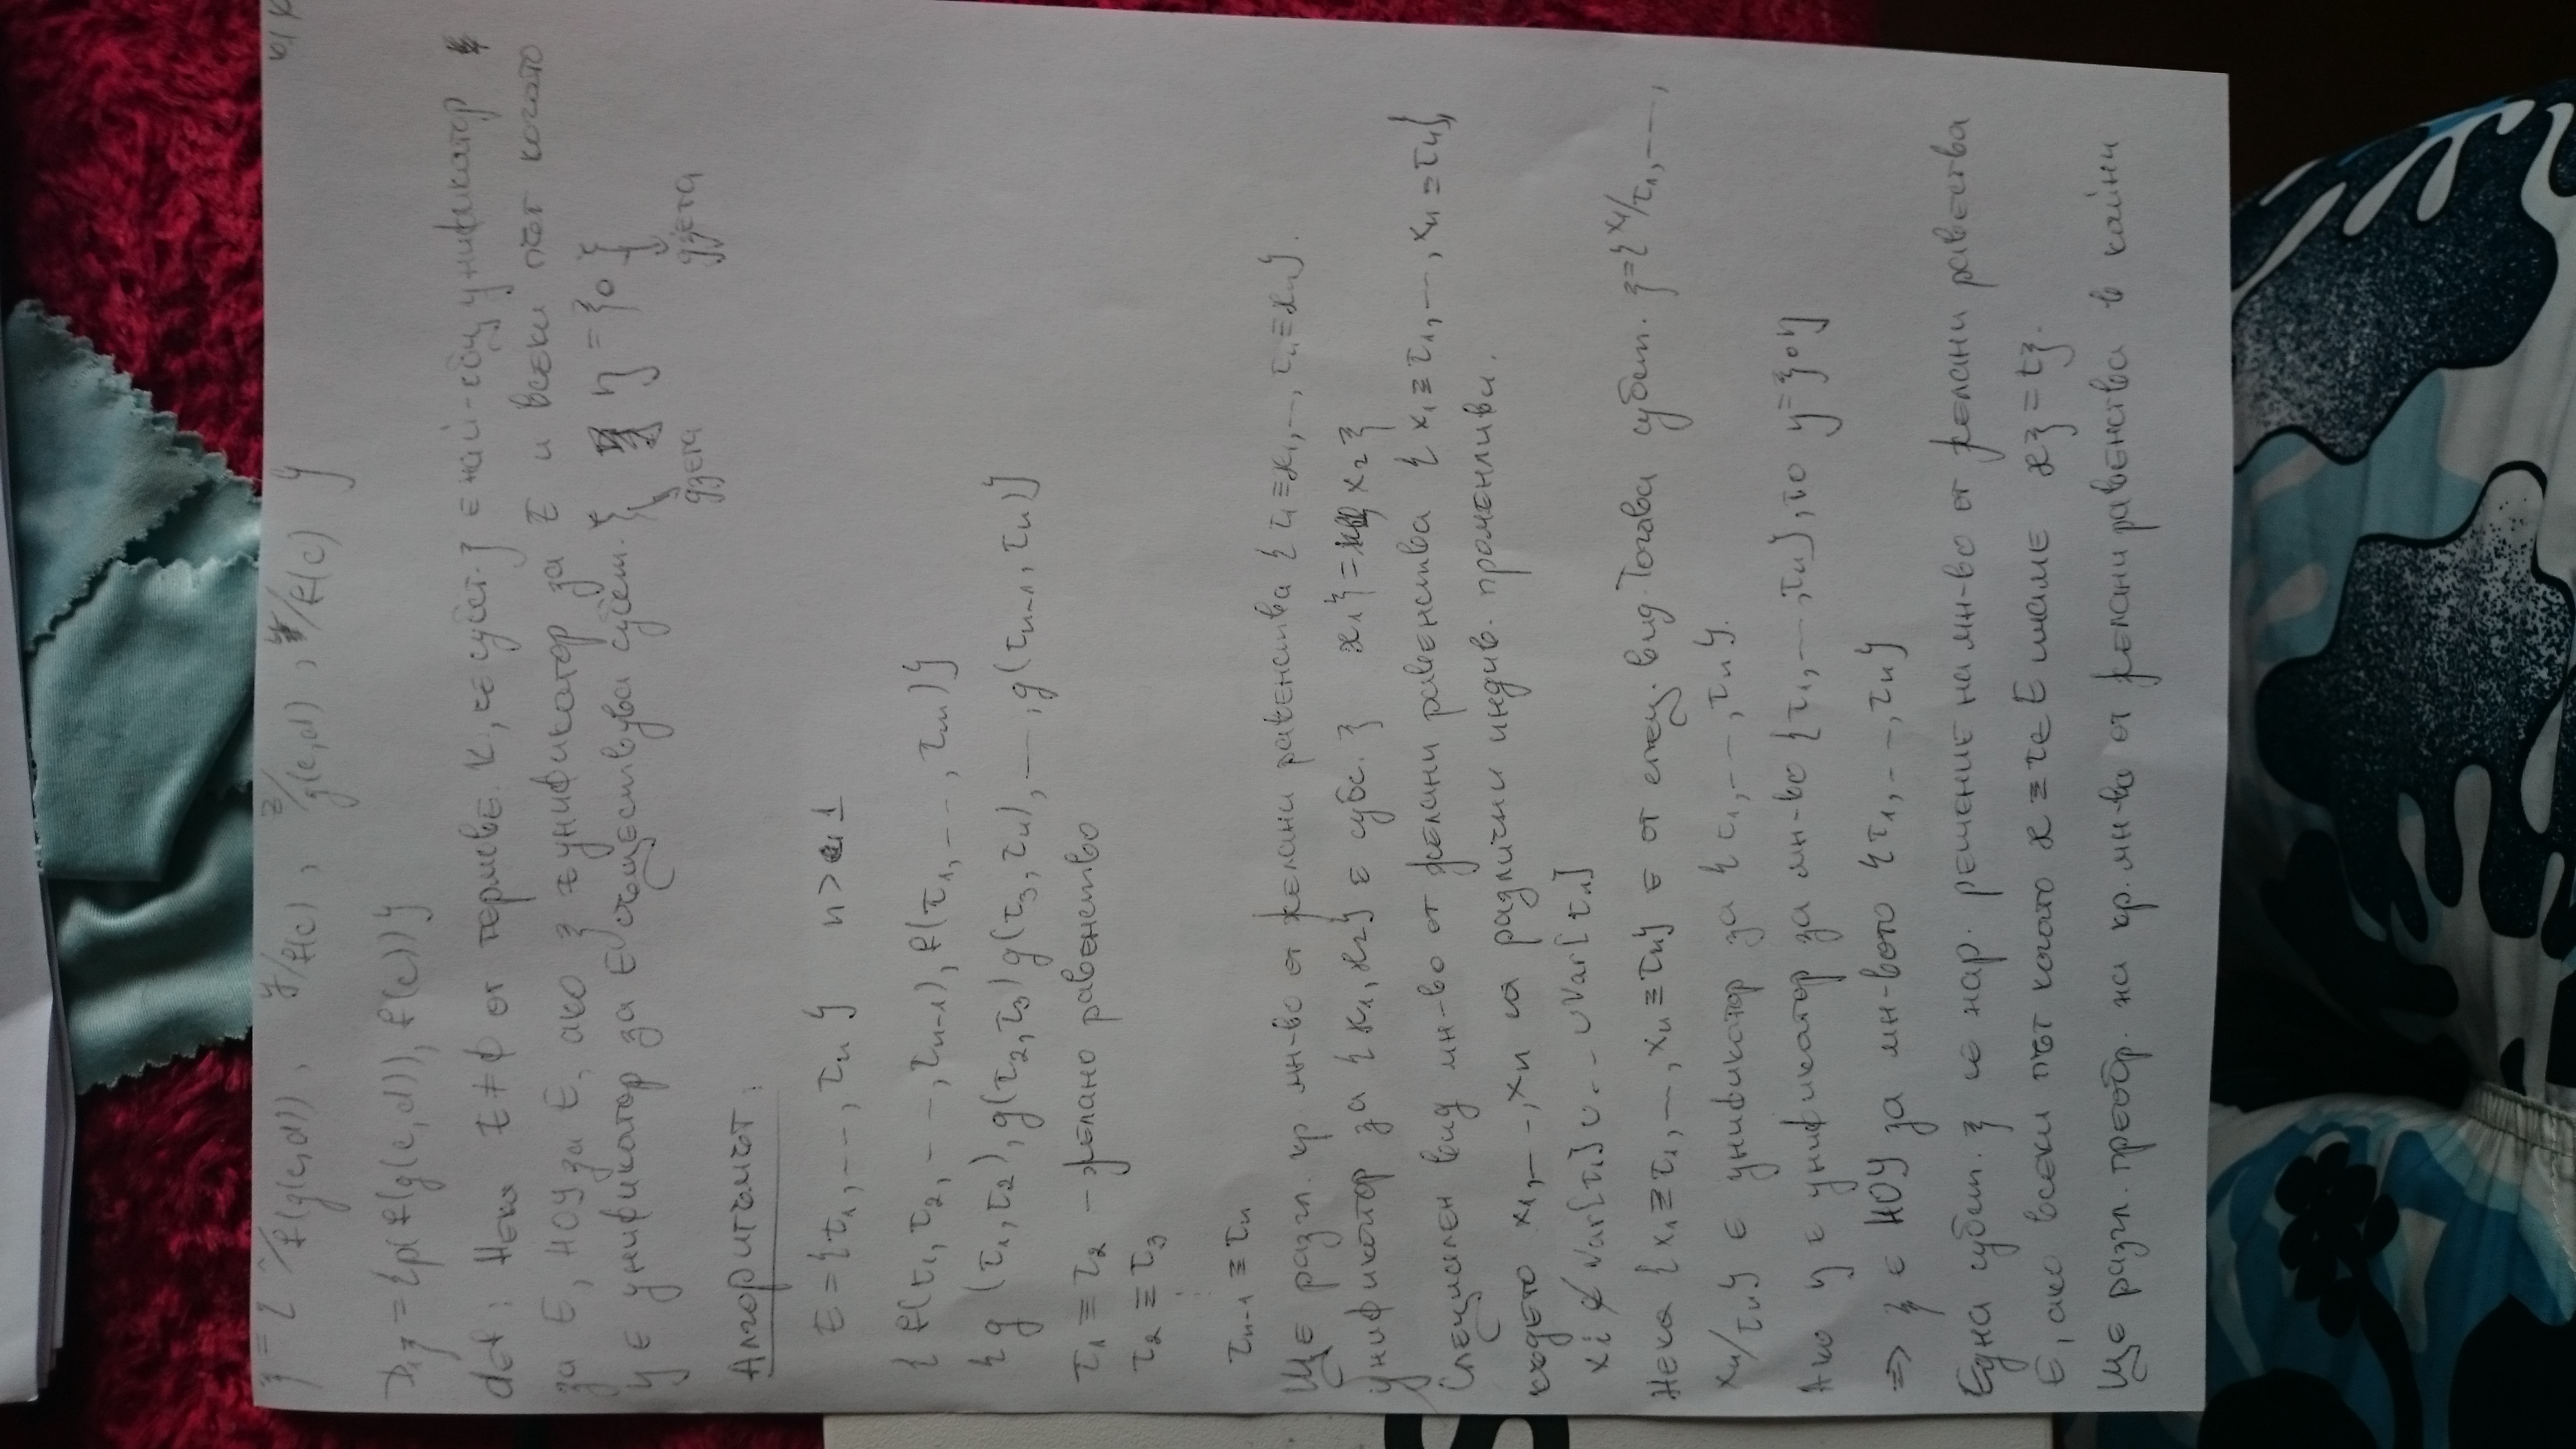 ξ = { x/f(g(c,d)), y/f(c), z/g(c,d), u/f(c) }
D₁ξ = {p(f(g(c,d)), f(c))}
def: Нека E ≠ ∅ от термове. К, че субст. ξ е най-общ унификатор
за E, НОУ за E, ако ξ е унификатор за E и всеки път когато
η е унификатор за E съществува субст. ζ η = ξ o ζ
дзета дзета
Алгоритъмът:
E = {τ₁, --, τn} n > 1
{ f(τ₁, τ₂, --, τn-1), f(τ₁, --, τn)}
{ g(τ₁, τ₂), g(τ₂, τ₃) g(τ₃, τn), --, g(τn-1, τn)}
τ₁ ≡ τ₂ - желано равенство
τ₂ ≡ τ₃
⋮
τn-1 ≡ τn
Ще разгл. кр. мн-во от желани равенства { τ₁ ≡ ϰ₁, --, τn ≡ ϰn}.
Унификатор за { ϰ₁, ϰ₂} е субс. ξ ϰ₁ξ = ϰ₂ξ
Специален вид мн-во от желани равенства { x₁ ≡ τ₁, --, xn ≡ τn},
където x₁, --, xn са различни индив. променливи.
xi ∉ Var[τ₁] ∪ -- ∪ Var[τn]
Нека {x₁ ≡ τ₁, --, xn ≡ τn} е от спец. вид. Тогава субст. ξ = { x₁/τ₁, --,
xn/τn} е унификатор за { τ₁, --, τn}.
Ако η е унификатор за мн-во {τ₁, --, τn}, то η = ξ o η
⇒ ξ е НОУ за мн-вото {τ₁, --, τn}
Една субст. ξ се нар. решение на мн-во от желани равества
E, ако всеки път когато ϰ ≡ τ ∈ E имаме ϰξ = τξ.
Ще разгл. преобр. на кр. мн-во от желани равенства в крайни